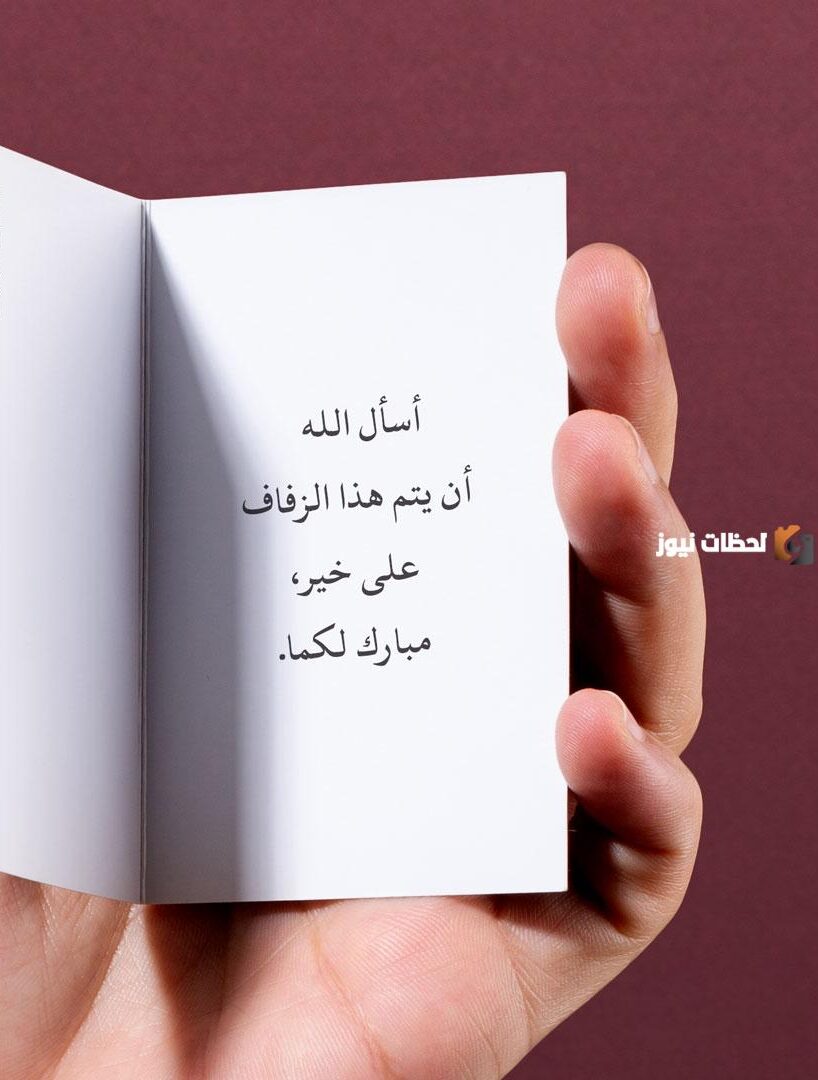 أسأل الله
أن يتم هذا الزفاف
على خير،
مبارك لكما.
لحظات نيوز